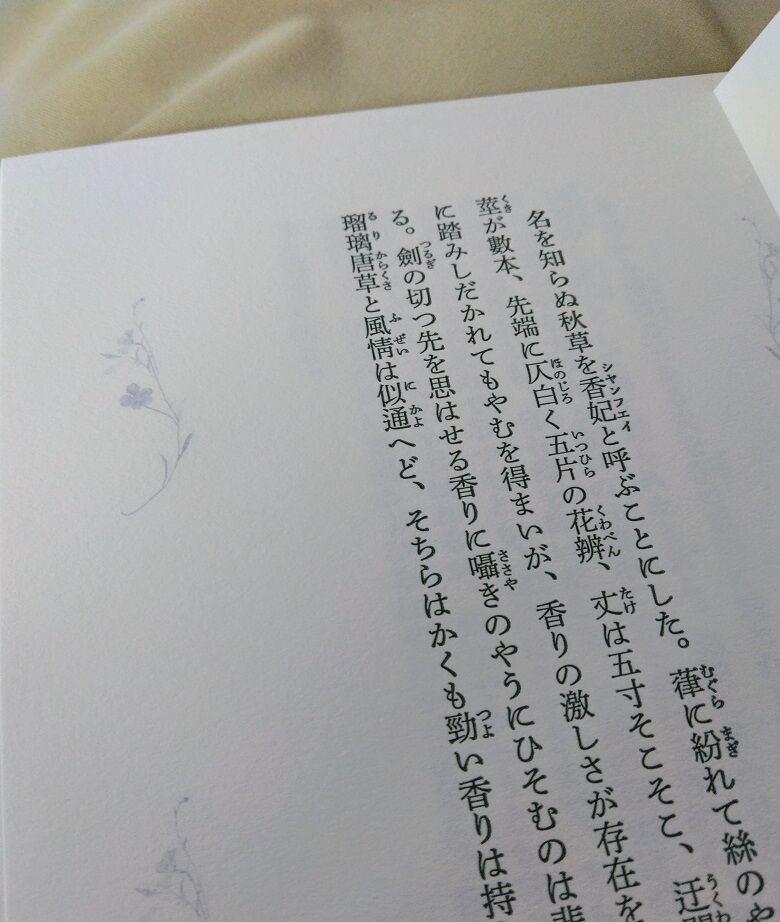 名を知らぬ秋草を香妃と呼ぶことにした。葎に紛れて絲の
莖が數本、先端に仄白く五片の花辨、丈は五寸そこそこ、迂
に踏みしだかれてもやむを得まいが、香りの激しさが存在を
る。劍の切つ先を思はせる香りに囁きのやうにひそむのは悲
瑠璃唐草と風情は似通へど、そちらはかくも勁い香りは持